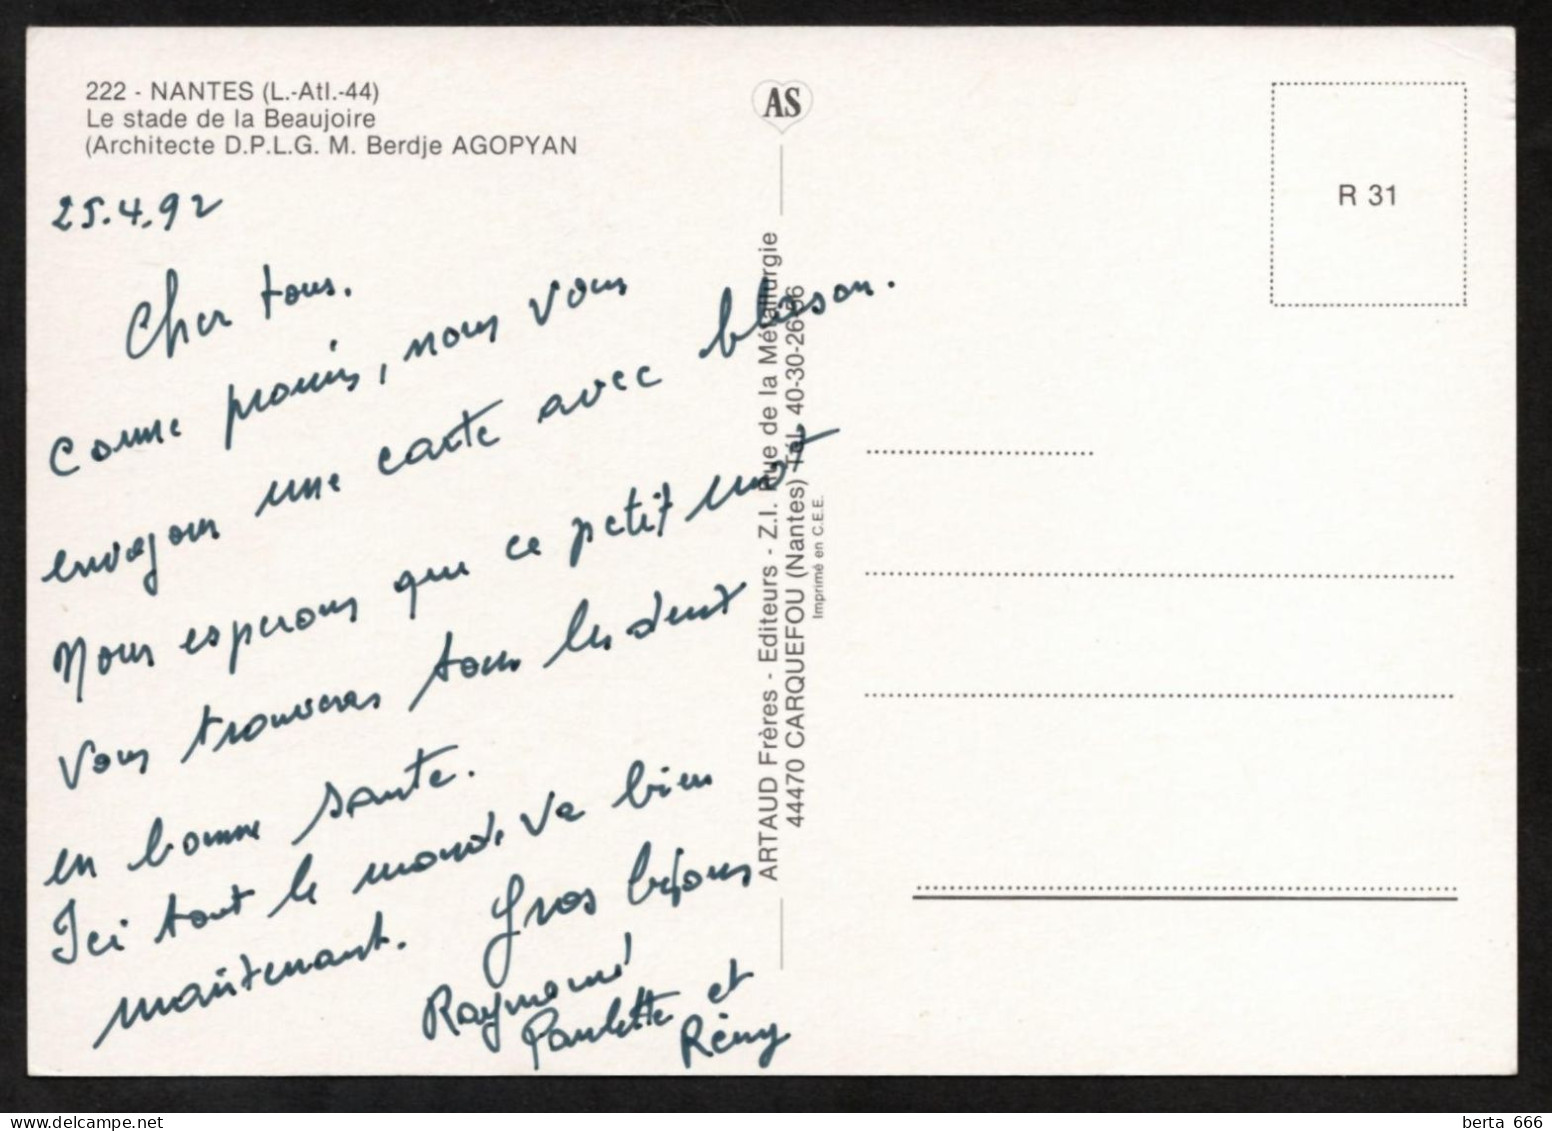 222 - NANTES (L.-Atl.-44)
Le stade de la Beaujoire
(Architecte D.P.L.G. M. Berdje AGOPYAN
25.4.92
Cher tous.
Comme promis, nous vous
envoyons une carte avec blason.
Nous esperons que ce petit mot
vous trouveras tous les deux
en bonne sante.
Ici tout le monde va bien
maintenant. Gros bisous
Raymond
Paulette et
Rémy
AS
ARTAUD Frères - Editeurs - Z.I. Rue de la Métallurgie
44470 CARQUEFOU (Nantes) Tél. 40-30-26-66
Imprimé en C.E.E.
R 31
berta 666